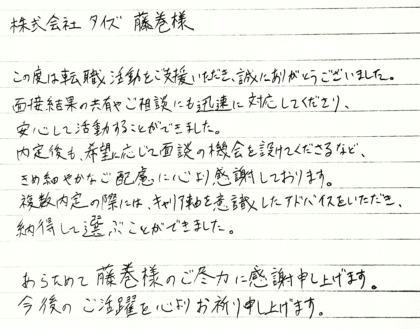 株式会社 タイズ 藤巻様
この度は転職活動をご支援いただき、誠にありがとうございました。
面接結果の共有やご相談にも迅速に対応してくださり、
安心して活動することができました。
内定後も、希望に応じて面談の機会を設けてくださるなど、
きめ細やかなご配慮に心より感謝しております。
複数内定の際には、キャリア軸を意識したアドバイスをいただき、
納得して選ぶことができました。
あらためて藤巻様のご尽力に感謝申し上げます。
今後のご活躍を心よりお祈り申し上げます。